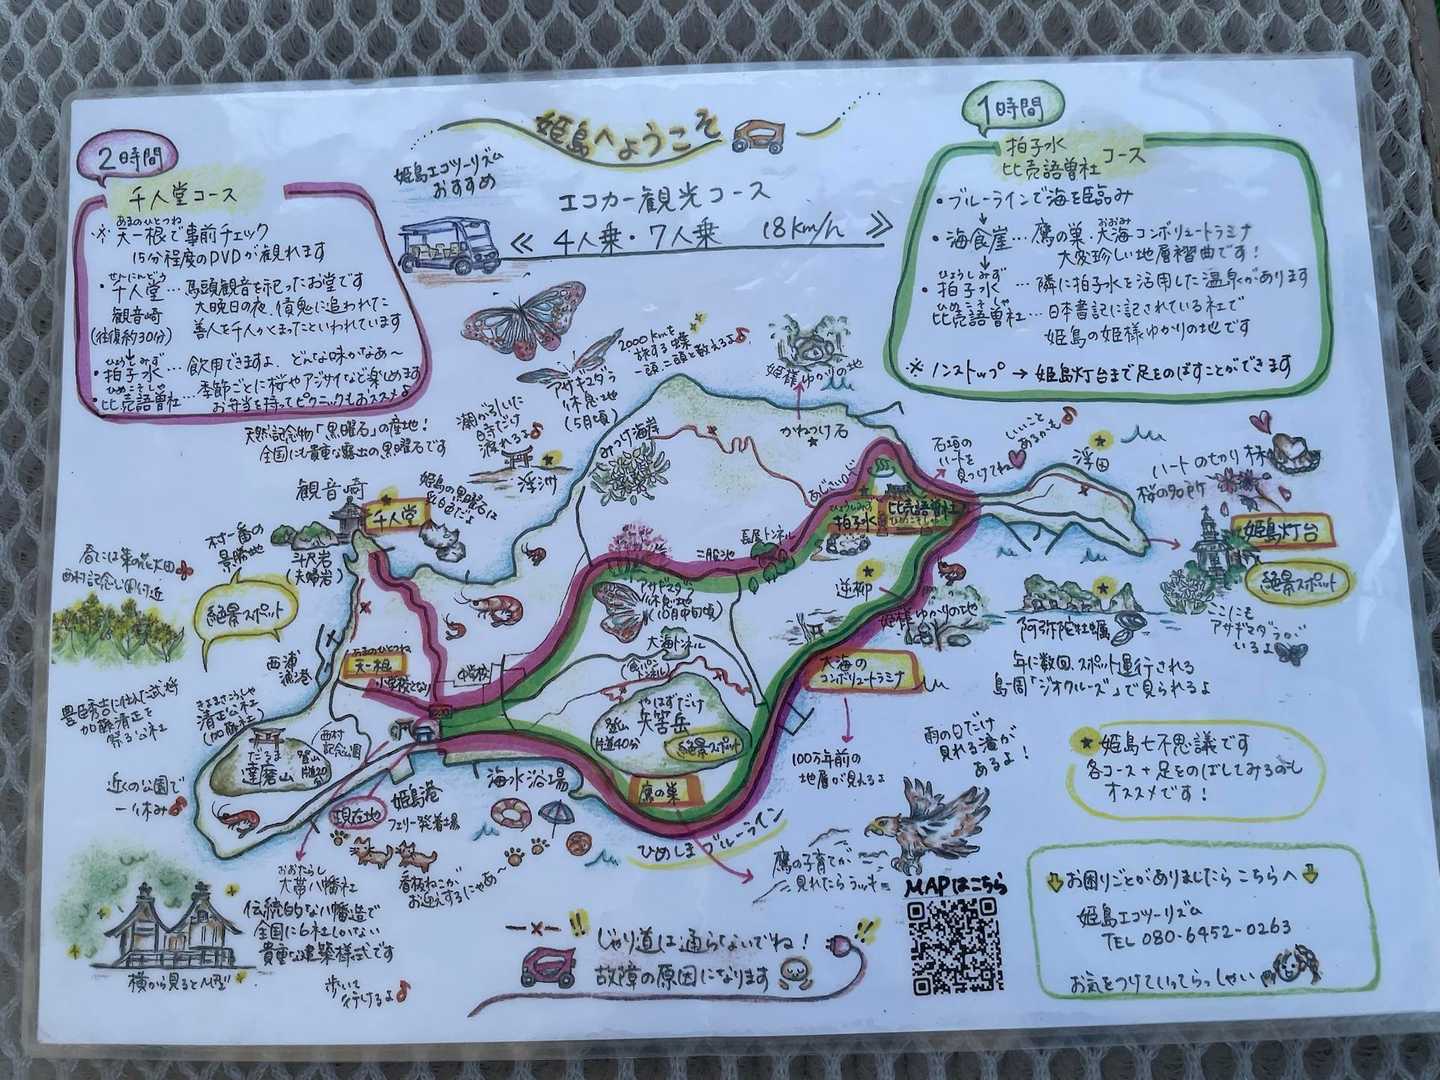 姫島へようこそ
姫島エコツーリズム
おすすめ
エコカー観光コース
≪ 4人乗・7人乗 18km/h ≫
2時間
千人堂コース
あまのひとつね
※ 天一根で事前チェック
15分程度のDVDが観れます
せんにんどう
・千人堂…馬頭観音を祀ったお堂です
観音崎 大晩日の夜、債鬼に追われた
(往復約30分) 善人を千人かくまったといわれています
ひょうしみず
・拍子水…飲用できますよ、どんな味かなあ～
ひめこそしゃ
・比売語曽社…季節ごとに桜やアジサイなど楽しめます
お弁当を持ってピクニックもおススメよ
1時間
拍子水
比売語曽社 コース
・ブルーラインで海を臨み
おおみ
・海食崖…鷹の巣・大海コンボリュートラミナ
大変珍しい地層褶曲です！
ひょうしみず
・拍子水 …隣に拍子水を活用した温泉があります
ひめこそしゃ
比売語曽社…日本書記に記されている社で
姫島の姫様ゆかりの地です
※ ノンストップ → 姫島灯台まで足をのばすことができます
天然記念物「黒曜石」の産地！
全国にも貴重な露出の黒曜石です
2000kmを
旅する蝶
一頭二頭と数えるよ♪
アサギマダラ
休息地
(5月頃)
潮がひいた
時だけ
渡れるよ♪
浮洲
みつけ海岸
姫様ゆかりの地
かねつけ石
あじさいロード
石垣の
ハートを
見つけてね
いいこと
あるかも♪
浮田
ハートのちかり株
桜の名所
姫島灯台
絶景スポット
ここにも
アサギマダラが
いるよ
観音崎
千人堂
姫島の黒曜石は
乳白色だよ
斗尺岩
(夫婦岩)
村一番の
景勝地
絶景スポット
春には菜の花大田
西村記念公園付近
西浦
漁港
あまのひとつね
天一根
小学校となり
中学校
二股池
長尾トンネル
ひょうしみず
拍子水
比売語曽社
ひめこそしゃ
逆柳
姫様ゆかりの地
アサギマダラ
休息地
(10月中旬頃)
大海トンネル
(食パン
トンネル)
やはずだけ
矢筈岳
登山
片道40分
絶景スポット
鷹の巣
大海の
コンボリュートラミナ
100万年前の
地層が見えるよ
阿弥陀牡蠣
年に数回、スポット運行される
島周「ジオクルーズ」で見られるよ
雨の日だけ
見れる滝が
あるよ！
豊臣秀吉に仕えた武将
加藤清正を
祭る公社
せいしょうこうしゃ
清正公社
(加藤社)
西村
記念公園
だるま
達磨山
登山
片道20分
近くの公園で
一休み♪
現在地
姫島港
フェリー発着場
海水浴場
看板ねこが
お迎えするにゃあ～
ひめしまブルーライン
鷹の子育てが、
見れたらラッキー
おおたらし
大帯八幡社
伝統的な八幡造で
全国に6社しかない
貴重な建築様式です
横から見るとM型
歩いて
行けるよ♪
じゃり道は通らないでね！
故障の原因になります
MAPはこちら
★姫島七不思議です
各コース＋足をのばしてみるのも
オススメです！
お困りごとがありましたらこちらへ
姫島エコツーリズム
TEL 080-6452-0263
お気をつけていってらっしゃい